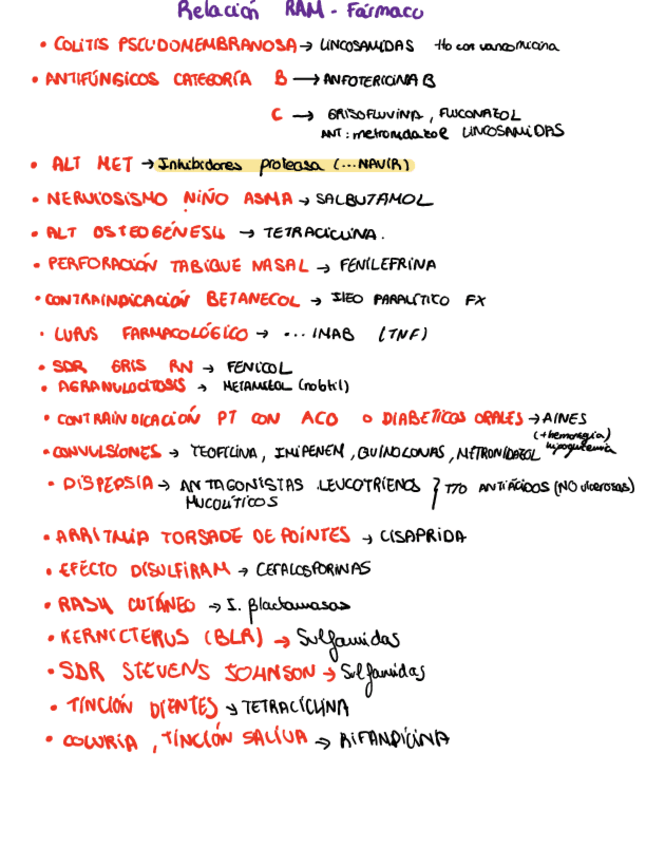 Relación RAM - Fármaco
• COLITIS PSEUDOMEMBRANOSA → LINCOSAMIDAS tto con vancomicina
• ANTIFÚNGICOS CATEGORÍA B → ANFOTERICINA B
C → GRISOFLUVINA, FLUCONAZOL
ANT: metronidazol LINCOSAMIDAS
• ALT MET → Inhibidores proteasa (...NAVIR)
• NERVIOSISMO NIÑO ASMA → SALBUTAMOL
• ALT OSTEOGÉNESIS → TETRACICLINA.
• PERFORACIÓN TABIQUE NASAL → FENILEFRINA
• CONTRAINDICACIÓN BETANECOL → ILEO PARALÍTICO FX
• LUPUS FARMACOLÓGICO → ... IMAB (TNF)
• SDR GRIS RN → FENICOL
• AGRANULOCITOSIS → METAMIZOL (nobtil)
• CONTRAINDICACIÓN PT CON ACO o DIABETICOS ORALES → AINES
(+hemorragia)
hipoglucemia
• CONVULSIONES → TEOFILINA, IMIPENEM, QUINOLONAS, METRONIDAZOL
• DISPEPSIA → ANTAGONISTAS LEUCOTRIENOS } TTO ANTIÁCIDOS (NO ulcerosas)
MUCOLÍTICOS
• ARRITMIA TORSADE DE POINTES → CISAPRIDA
• EFECTO DISULFIRAM → CEFALOSPORINAS
• RASH CUTÁNEO → I. βlactamasas
• KERNICTERUS (BLR) → Sulfamidas
• SDR STEVENS JOHNSON → Sulfamidas
• TINCIÓN DIENTES → TETRACICLINA
• COLURIA, TINCIÓN SALIVA → RIFANPICINA